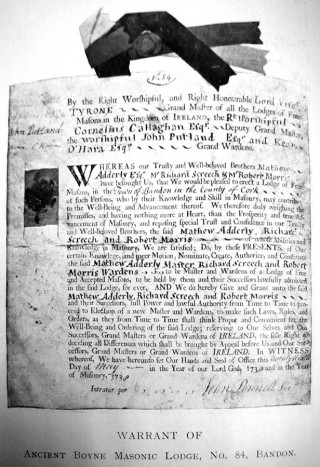 No. 84
John Putland
By the Right Worshipful, and Right Honourable Lord Visct.
TYRONE Grand Master of all the Lodges of Free
Masons in the Kingdom of IRELAND, the Rt. Worshipful
Cornelius Callaghan Esqr. Deputy Grand Master,
the Worshipful John Putland Esqr. and Keane
O'Hara Esqr. Grand Wardens.
WHEREAS our Trusty and Well-beloved Brothers Mathew
Adderly Esqr. Mr Richard Screech & Mr Robert Morris
have besought Us, that We would be pleased to erect a Lodge of Free
Masons, in the Town of Bandon in the County of Cork
of such Persons, who by their Knowledge and Skill in Masonry, may contribute
to the Well-Being and Advancement thereof. We therefore duly weighing the
Premises, and having nothing more at Heart, than the Prosperity and true Ad-
vancement of Masonry, and reposing special Trust and Confidence in our Trusty
and Well-beloved Brothers, the said Mathew Adderly, Richard
Screech and Robert Morris of whose Abilities and
Knowledge in Masonry, We are satisfied; Do, by these PRESENTS, of Our
certain Knowledge, and meer Motion, Nominate, Create, Authorize, and Constitute
the said Mathew Adderly Master, Richard Screech and Robert
Morris Wardens to be Master and Wardens of a Lodge of Free
and Accepted Masons, to be held by them and their Successors lawfully admitted
in the said Lodge, for ever. AND We do hereby Give and Grant unto the said
Mathew Adderly, Richard Screech and Robert Morris
and their Successors, full Power and lawful Authority from Time to Time to pro-
ceed to Election of a new Master and Wardens, to make such Laws, Rules, and
Orders, as they from Time to Time shall think Proper and Convenient for the
Well-Being and Ordering of the said Lodge; reserving to Our selves and Our
Successors, Grand Masters or Grand Wardens of IRELAND, the sole Right of
deciding all Differences which shall be brought by Appeal before Us and Our Suc-
cessors, Grand Masters or Grand Wardens of IRELAND. In WITNESS
whereof, We have hereunto set Our Hands and Seal of Office this
Day of May in the Year of our Lord God, 1738 and in the Year
of Masonry, 5738
Intratur per John Pennell Sec
WARRANT OF
ANCIENT BOYNE MASONIC LODGE, NO. 84, BANDON.